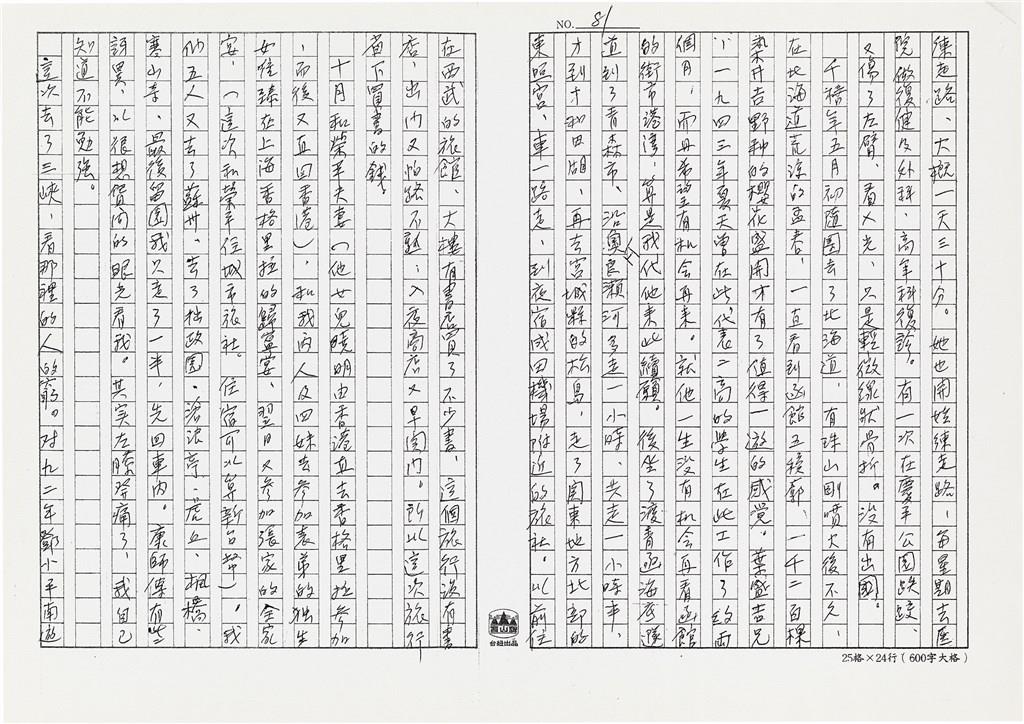 NO. 81
練走路、大概一天三十分。她也開始練走路，每星期去医
院做復健及外科、高年科復診。有一次在慶平公園跌跤、
又傷了左臂、看X光、只是輕微線狀骨折。沒有出國。
千禧年五月初隨團去了北海道、有珠山剛噴火後不久、
在北海道荒涼的孟春、一直看到函館五稜郭、一千二百棵
染井吉野种的櫻花盛開才有了值得一遊的感覚。葉盛吉兄
、一九四三年夏天曾在此代表二高的學生在此工作了約兩
個月，而再希望有机会再来。說他一生没有机会再看函館
的街市港湾，算是我代他来此續願。後坐了渡青函海底隧
道到了青森市、沿奧良瀬河了走一小時、共走一小時半、
才到十和田湖、再去宮城縣的松島、走了関東地方北部的
東照宮、車一路走、到夜宿成田機場附近的旅社。以前住
在西武的旅館、大樓有書店買了不少書、這個旅行没有書
店、出門又怕路不熟、入夜商店又早関門。所以這次旅行
省下買書的錢。
十月和榮平夫妻（他女兒曉明由香港直去香格里拉參加
，而後又直回香港）、和我內人及四妹去參加表弟的独生
女佳臻在上海香格里拉的歸寧宴、翌日又參加張家的全家
宴、（這次和榮平住城市旅社。住宿可以算新台幣）。我
们五人又去了蘇州、去了拙政園、滄浪亭、虎丘、楓橋、
寒山寺、最後留園我只走了一半、先回車內。康師傅有些
訝異、以很想質问的眼光看我。其实左膝疼痛了、我自己
知道不能勉強。
這次去了三峡、看那裡的人的窮。对九二年鄧小平南巡
台紐出品
25格×24行（600字大格）